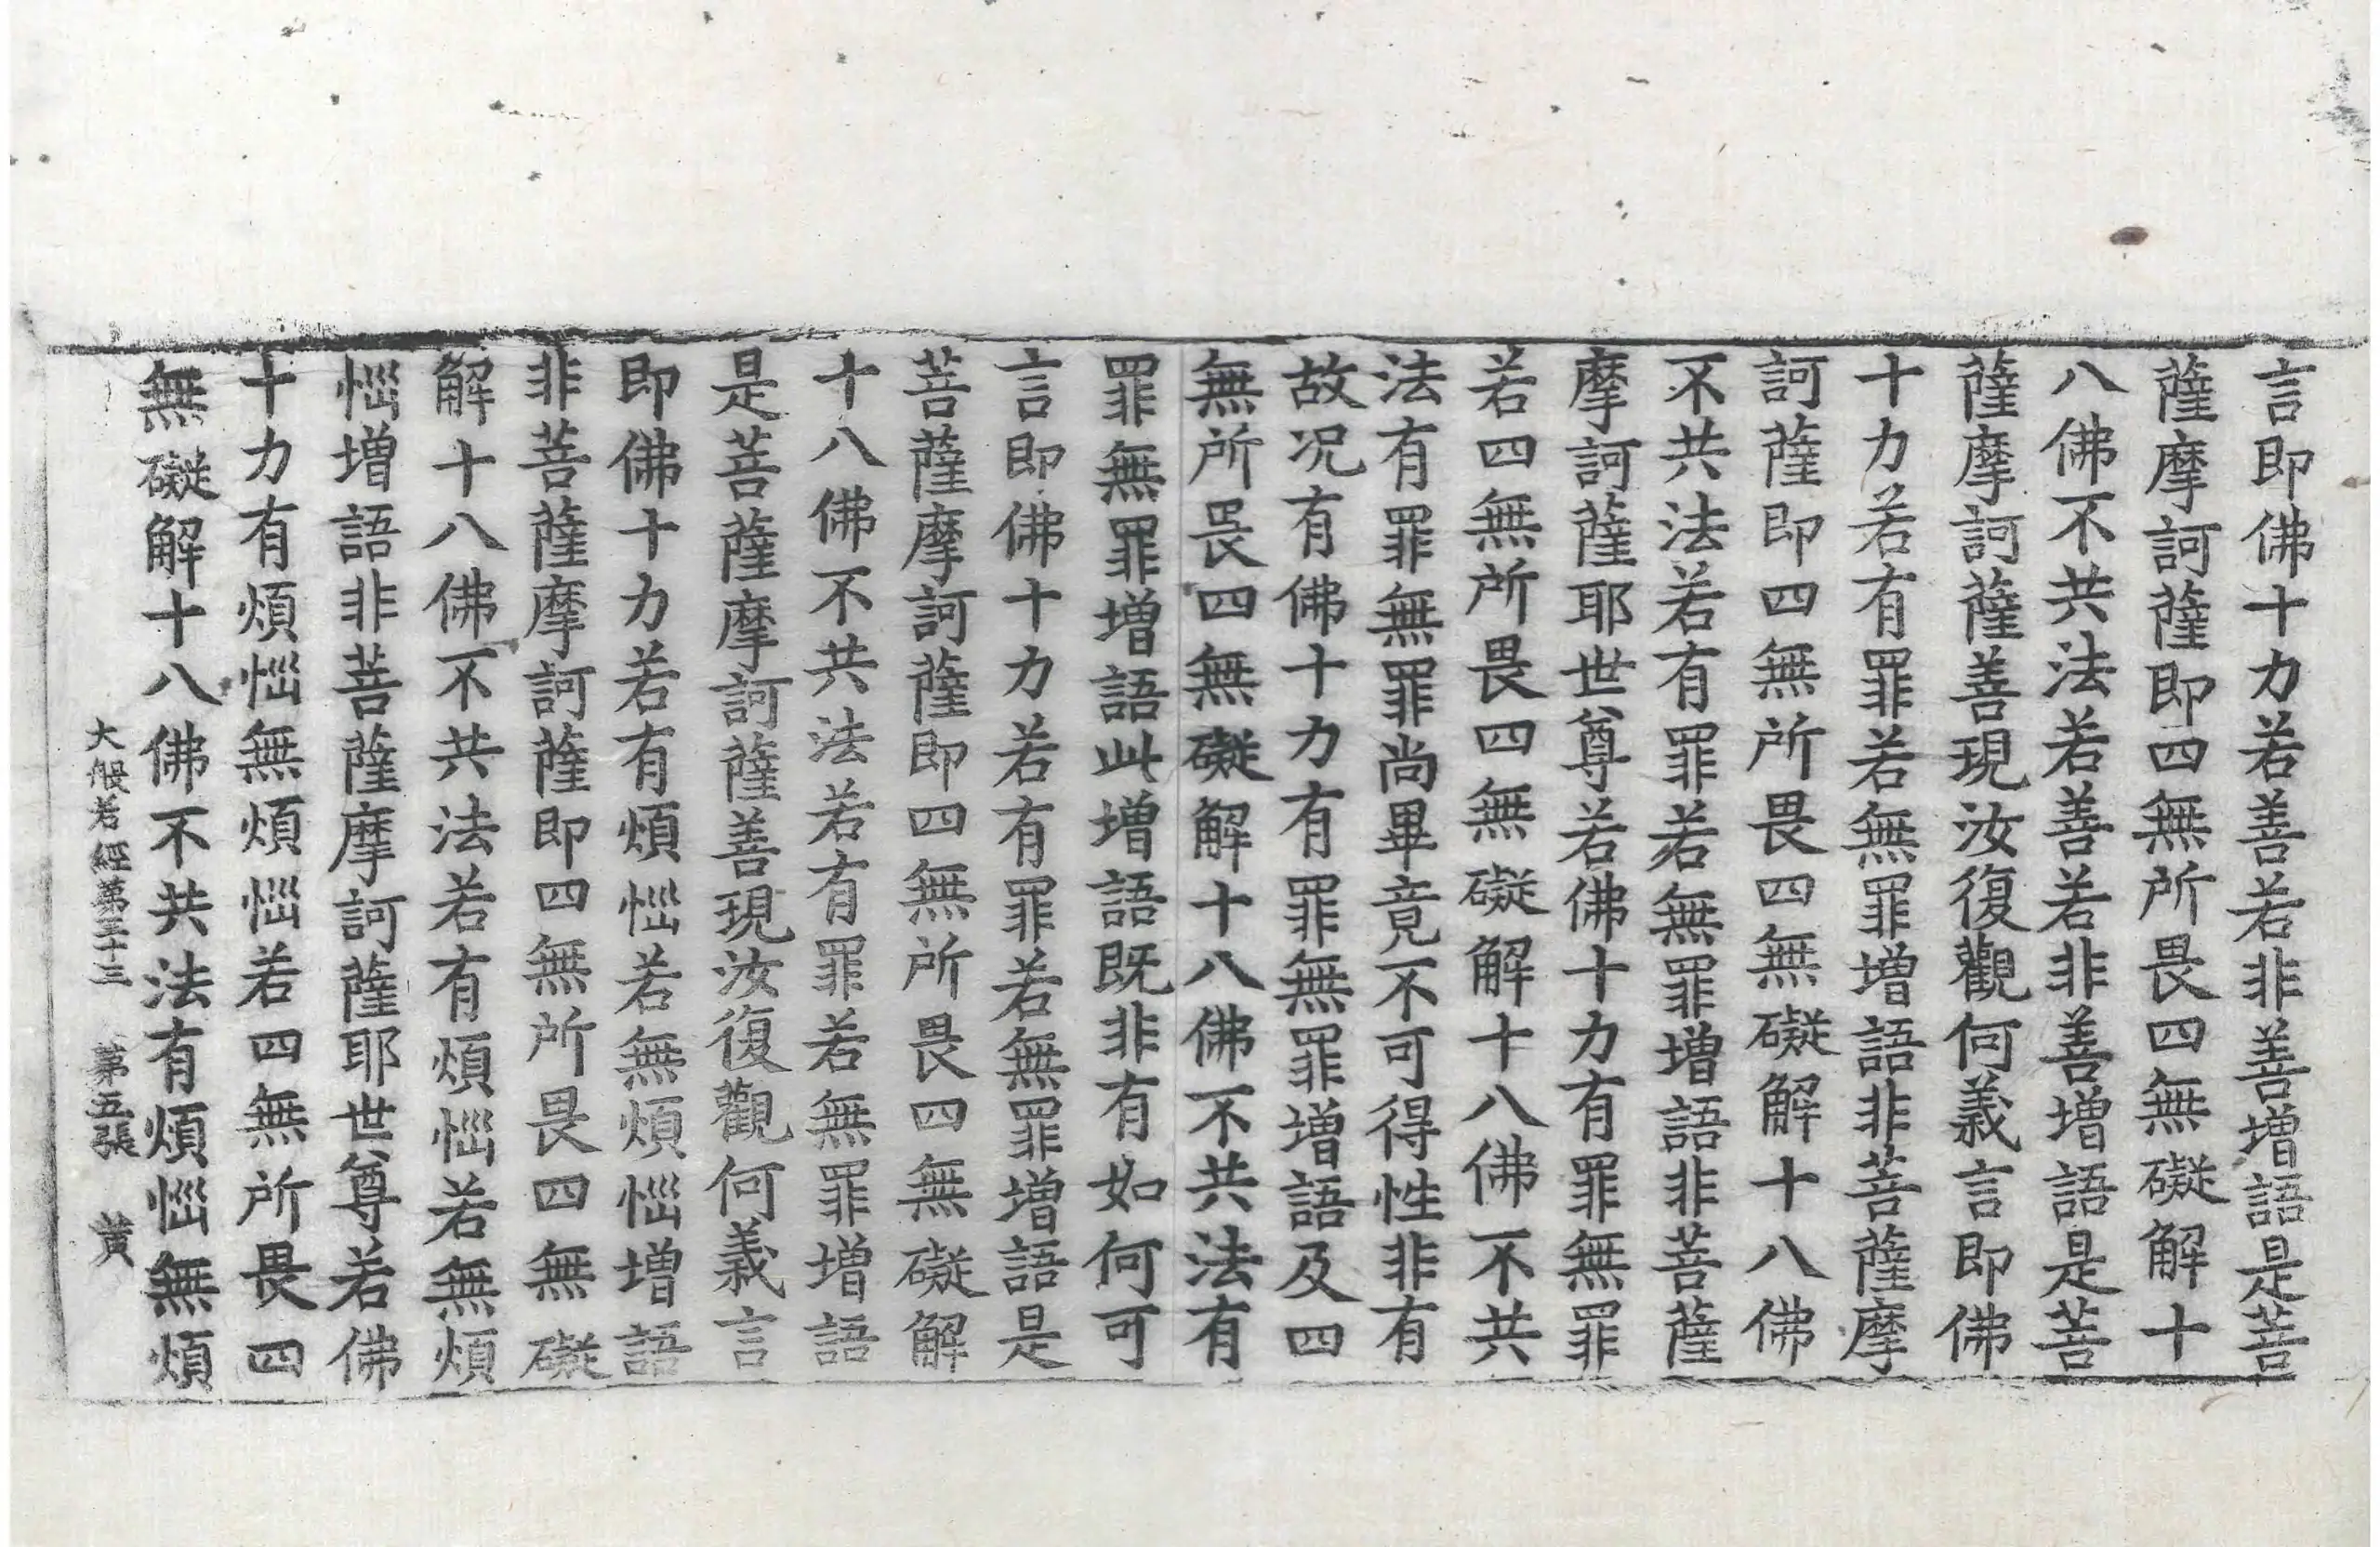 言即佛十力若善若非善增語是菩
薩摩訶薩即四無所畏四無礙解十
八佛不共法若善若非善增語是菩
薩摩訶薩善現汝復觀何義言即佛
十力若有罪若無罪增語非菩薩摩
訶薩即四無所畏四無礙解十八佛
不共法若有罪若無罪增語非菩薩
摩訶薩耶世尊若佛十力有罪無罪
若四無所畏四無礙解十八佛不共
法有罪無罪尚畢竟不可得性非有
故况有佛十力有罪無罪增語及四
無所畏四無礙解十八佛不共法有
罪無罪增語此增語既非有如何可
言即佛十力若有罪若無罪增語是
菩薩摩訶薩即四無所畏四無礙解
十八佛不共法若有罪若無罪增語
是菩薩摩訶薩善現汝復觀何義言
即佛十力若有煩惱若無煩惱增語
非菩薩摩訶薩即四無所畏四無礙
解十八佛不共法若有煩惱若無煩
惱增語非菩薩摩訶薩耶世尊若佛
十力有煩惱無煩惱若四無所畏四
無礙解十八佛不共法有煩惱無煩
大般若經第三十三 第五張 黃